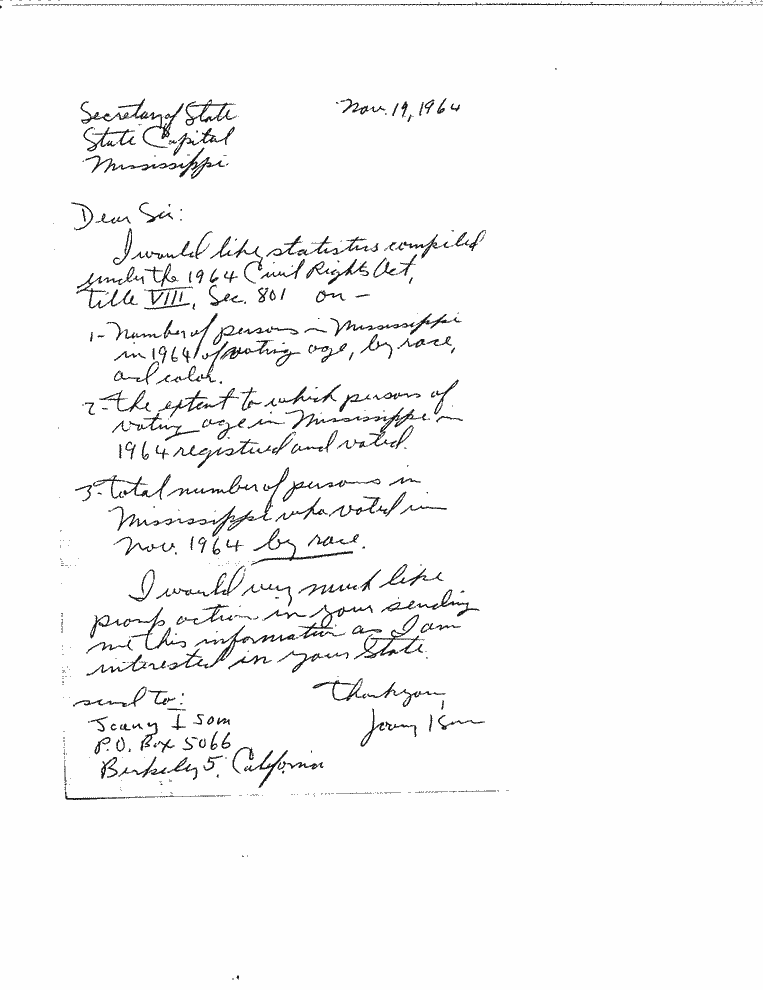 Secretary of State
Nov. 19, 1964
State Capital
Mississippi
Dear Sir:
I would like statistics compiled
under the 1964 Civil Rights Act,
title VIII, Sec. 801 on -
1- Number of persons in Mississippi
in 1964 of voting age, by race,
and color.
2- the extent to which persons of
voting age in Mississippi in
1964 registered and voted.
3- total number of persons in
Mississippi who voted in
Nov. 1964 by race.
I would very much like
promp action in your sending
me this information as I am
interested in your State.
send to:
Thank you,
Isom
P.O. Box 5066
Berkeley 5, California